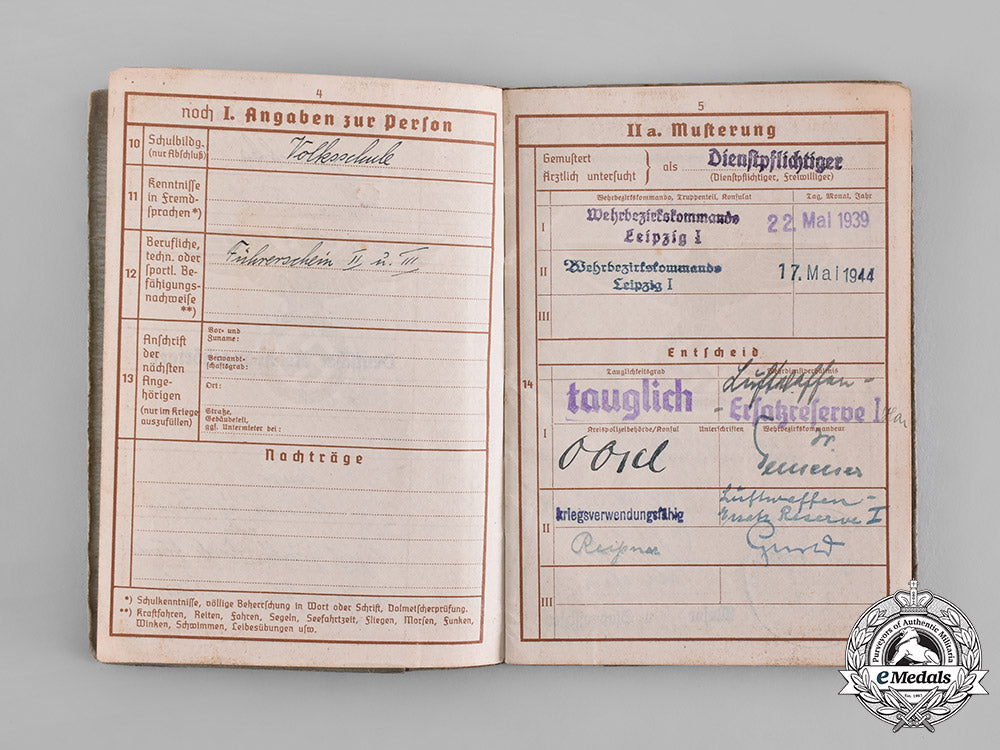 4
noch I. Angaben zur Person
10
Schulbildg.
(nur Abschluß)
Volksschule
11
Kenntnisse
in Fremd-
sprachen*)
12
Berufliche,
techn. oder
sportl. Be-
fähigungs-
nachweise
**)
Führerschein II u. III
13
Anschrift
der
nächsten
Ange-
hörigen
(nur im Kriege
auszufüllen)
Vor- und
Zuname:
Verwandt-
schaftsgrad:
Ort:
Straße,
Gebäudeteil,
ggf. Untermieter bei:
Nachträge
*) Schulkenntnisse, völlige Beherrschung in Wort oder Schrift, Dolmetscherprüfung.
**) Kraftfahren, Reiten, Fahren, Segeln, Seefahrtzeit, Fliegen, Morsen, Funken,
Winken, Schwimmen, Leibesübungen usw.
5
II a. Musterung
Gemustert
Ärztlich untersucht
als
Dienstpflichtiger
(Dienstpflichtiger, Freiwilliger)
Wehrbezirkskommando, Truppenteil, Konsulat
Tag, Monat, Jahr
I
Wehrbezirkskommando
Leipzig I
22. Mai 1939
II
Wehrbezirkskommando
Leipzig I
17. Mai 1944
III
14
Entscheid
Tauglichkeitsgrad
Wehrdienstverhältnis
tauglich
Luftwaffen-
Ersatzreserve I
I
Kreispolizeibehörde/Konsul
Unterschriften
Wehrbezirkskommandeur
II
kriegsverwendungsfähig
Luftwaffen-
Ersatz Reserve I
III
Purveyors of Authentic Militaria
eMedals